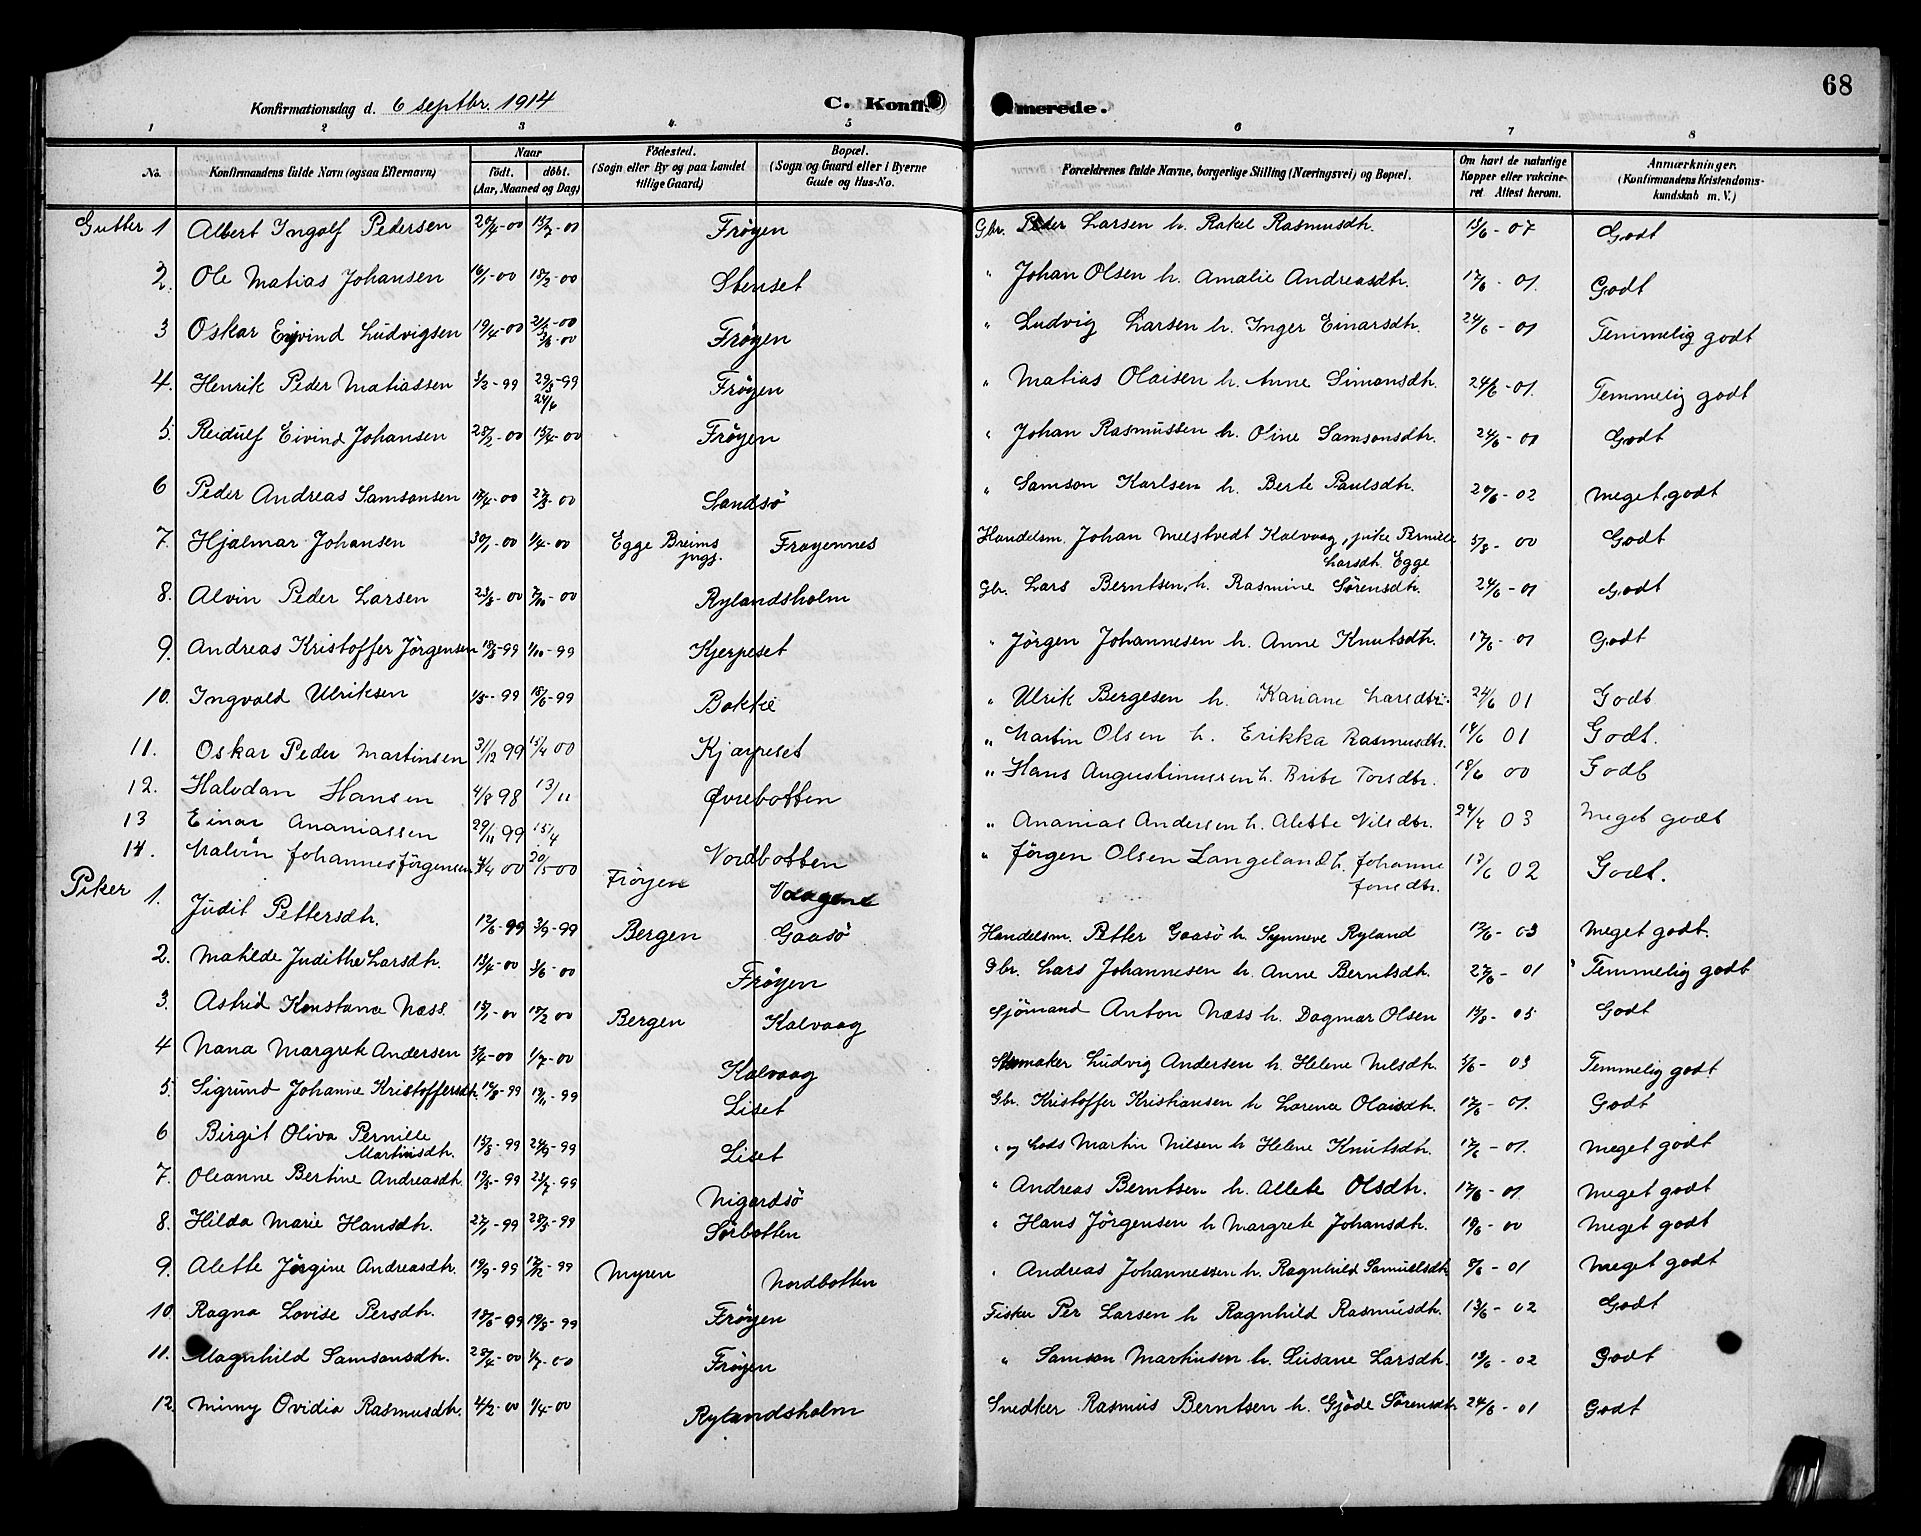 68
Konfirmationsdag d. 6 septbr. 1914
C. Konfirmerede.
1 2 3 4 5 6 7 8
No.
Konfirmandens fulde Navn (ogsaa Efternavn)
Naar
født. døbt.
(Aar, Maaned og Dag)
Fødested.
(Sogn eller By og paa Landet
tillige Gaard)
Bopæl.
(Sogn og Gaard eller i Byerne
Gade og Hus-No.
Forældrenes fulde Navne, borgerlige Stilling (Næringsvei) og Bopæl.
Om havt de naturlige
Kopper eller vakcine-
ret Attest herom.
Anmærkninger.
(Konfirmandens Kristendoms-
kundskab m. V.)
Gutter 1 Albert Ingolf Pedersen 15/7-00 Frøyen Gbr. Peder Larsen h. Rakel Rasmusdh. 15/6-07 Godt
2. Ole Matias Johansen 16/1-00 18/2-00 Stenset " Johan Olsen h. Amalie Andreasdh. 17/6-01. Godt
3 Oskar Eivind Ludvigsen 19/4-00 Frøyen " Ludvig Larsen h. Inger Einarsdh. 24/6-01 Temmelig godt
4. Henrik Peder Matiassen 29/3-99 24/6 Frøyen " Matias Olaisen h. Anne Simonsdh. 24/6-01. Temmelig godt
5. Reidulf Eivind Johansen 28/2-00 15/4-00 Frøyen " Johan Rasmussen h. Oline Samsonsdh. 24/6-01 Godt
6 Peder Andreas Samsonsen Sandsö " Samson Karlsen h. Berte Paulsdh. 02 Meget godt
7. Hjalmar Johansen 30/1-00 1/4-00 Egge Breims Frøyennes Handelsm. Johan Melstvedt Kalvaag, pike Pernille 00 Godt
Larsdh. Egge
8. Alvin Peder Larsen 23/8-00 7/10-00 Rylandsholm Gbr. Lars Berntsen, h. Rasmine Sörensdh. 24/6-01 Godt
9. Andreas Kristoffer Jörgensen 1/10-99 Kjerpeset " Jörgen Johannesen h. Anne Knutsdh. 17/6-01 Godt
10. Ingvald Ulriksen 1/5-99 18/6-99 Bakke " Ulrik Bergesen h. Kariane Larsdtr. 24/6 01 Godt
11. Oskar Peder Martinsen 31/12 99 15/4 00 Kjærpeset " Martin Olsen h. Erikka Rasmusdtr. 17/6 01 Godt.
12. Halvdan Hansen 4/8 98 13/11 Øvrebotten " Hans Augustinussen h. Brite Torsdtr. 18/6 00 Godt
13 Einar Ananiassen 29/11 99 15/4 " Ananias Andersen h. Alette Nilsdtr. 03 Meget godt
14. Malvin Johannes Jörgensen 00 20/5 00 Nordbotten " Jörgen Olsen Langeland h. Johanne 02 Godt.
Jonsdtr.
Piker 1. Frøyen
Judit Pettersdh. 3/9-99 Bergen Gaasö Handelsm. Petter Gaasö h. Synneve Ryland 03 Meget godt.
2. Matilde Judithe Larsdh. 13/4-00 3/6-00 Frøyen Gbr. Lars Johannesen h. Anne Berntsdh. 01 Temmelig godt
3. Astrid Konstanse Næss. 00 Bergen Kalvaag Sjömand Anton Næss h. Dagmar Olsen 05 Godt
4 Nana Margrete Andersen 1/7-00 Kalvaag Ludvig Andersen h. Helene Nilsdh. 03 Temmelig godt
5. Sigrund Johanne Kristoffersdh. 99 Liset Gbr. Kristoffer Kristiansen h Larena Olaisdh. 17/6-01. Godt
6 Birgit Oliva Pernille 24/9-99 Liset " og Lods Martin Nilsen h Helene Knutsdh. 17/6-01. Meget godt
Martinsdh.
7. Oleanne Bertine Andreasdh. 23/7-99 Nigardsö " Andreas Berntsen h. Allete Olsdh. 17/6-01 Meget godt
8. Hilda Marie Hansdh. 99 Sörbotten " Hans Jörgensen h Margrete Johansdh. 00 Meget godt
9. Alette Jörgine Andreasdh. 99 Myren Nordbotten " Andreas Johannessen h. Ragnhild Samuelsdh 01 Meget godt
10. Ragna Lovise Persdh. 99 Frøyen Fisker Per Larsen h Ragnhild Rasmusdh. 13/6-02 Godt
11. Magnhild Samsonsdh. 28/4-00 1/7-00 Frøyen " Samson Martinsen h. Susane Larsdh. 13/6-02 Godt
12. Mimy Ovidia Rasmusdh. 4/2-00 1/4-00 Rylandsholm Snedker Rasmus Berntsen h. Gjöde Sörensdh 24/6-01 Godt